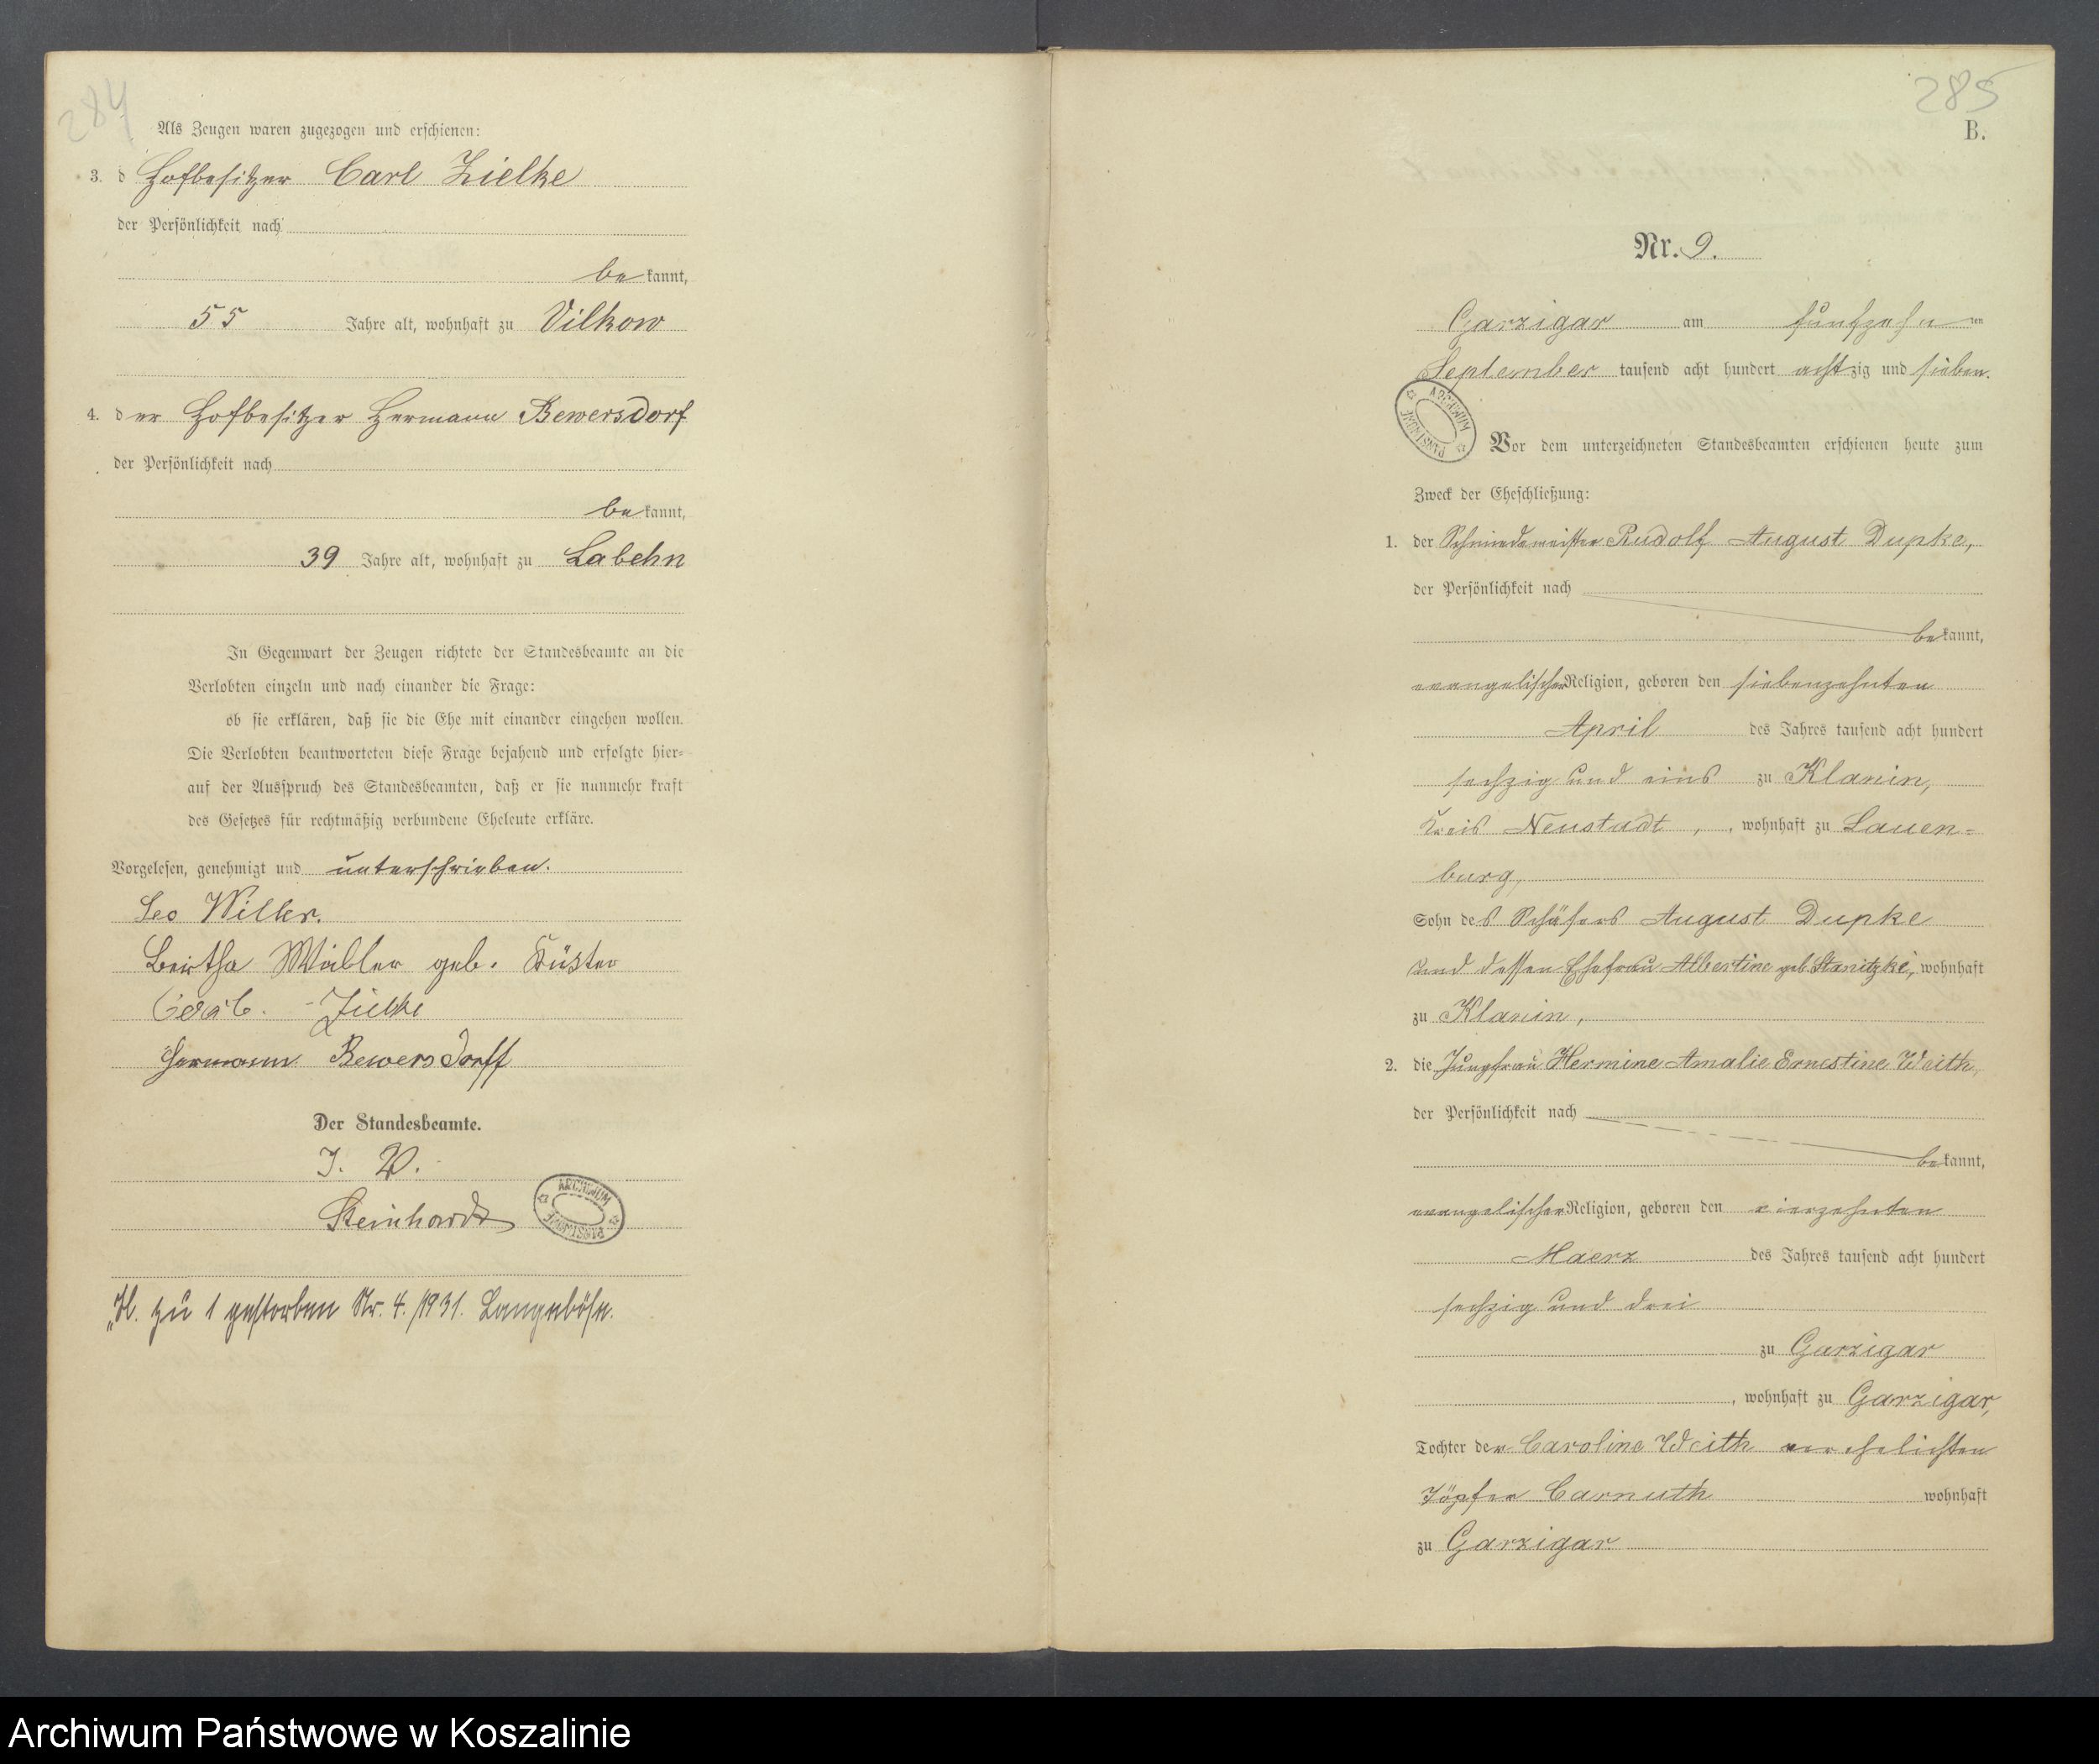 284
Als Zeugen waren zugezogen und erschienen:
3. d Hofbesitzer Carl Zielke
der Persönlichkeit nach
bekannt,
55 Jahre alt, wohnhaft zu Vilkow
4. der Hofbesitzer Hermann Bewersdorf
der Persönlichkeit nach
bekannt,
39 Jahre alt, wohnhaft zu Labehn
In Gegenwart der Zeugen richtete der Standesbeamte an die
Verlobten einzeln und nach einander die Frage:
ob sie erklären, daß sie die Ehe mit einander eingehen wollen.
Die Verlobten beantworteten diese Frage bejahend und erfolgte hier=
auf der Ausspruch des Standesbeamten, daß er sie nunmehr kraft
des Gesetzes für rechtmäßig verbundene Eheleute erkläre.
Vorgelesen, genehmigt und unterschrieben.
Leo
Bertha geb. Küster
Zielke
Hermann Bewersdorff
Der Standesbeamte.
I. V.
Steinhardt
ARCHIWUM PAŃSTWOWE
zu 1 gestorben Nr. 4./1931. Langeböse.
285
B.
Nr. 9.
Garzigar am fünfzehnten
September tausend acht hundert achtzig und sieben.
ARCHIWUM PAŃSTWOWE
Vor dem unterzeichneten Standesbeamten erschienen heute zum
Zweck der Eheschließung:
1. der Schmiedemeister Rudolf August Dupke,
der Persönlichkeit nach
bekannt,
evangelischer Religion, geboren den siebenzehnten
April des Jahres tausend acht hundert
sechzig und eins zu Klanin,
Kreis Neustadt, wohnhaft zu Lauen=
burg,
Sohn des Schäfers August Dupke
und dessen Ehefrau Albertine geb. Stanitzke, wohnhaft
zu Klanin,
2. die Jungfrau Hermine Amalie Ernestine Weith,
der Persönlichkeit nach
bekannt,
evangelischer Religion, geboren den vierzehnten
Maerz des Jahres tausend acht hundert
sechzig und drei
zu Garzigar
, wohnhaft zu Garzigar,
Tochter der Caroline Weith verehelichten
Töpfer Carnuth wohnhaft
zu Garzigar
Archiwum Państwowe w Koszalinie